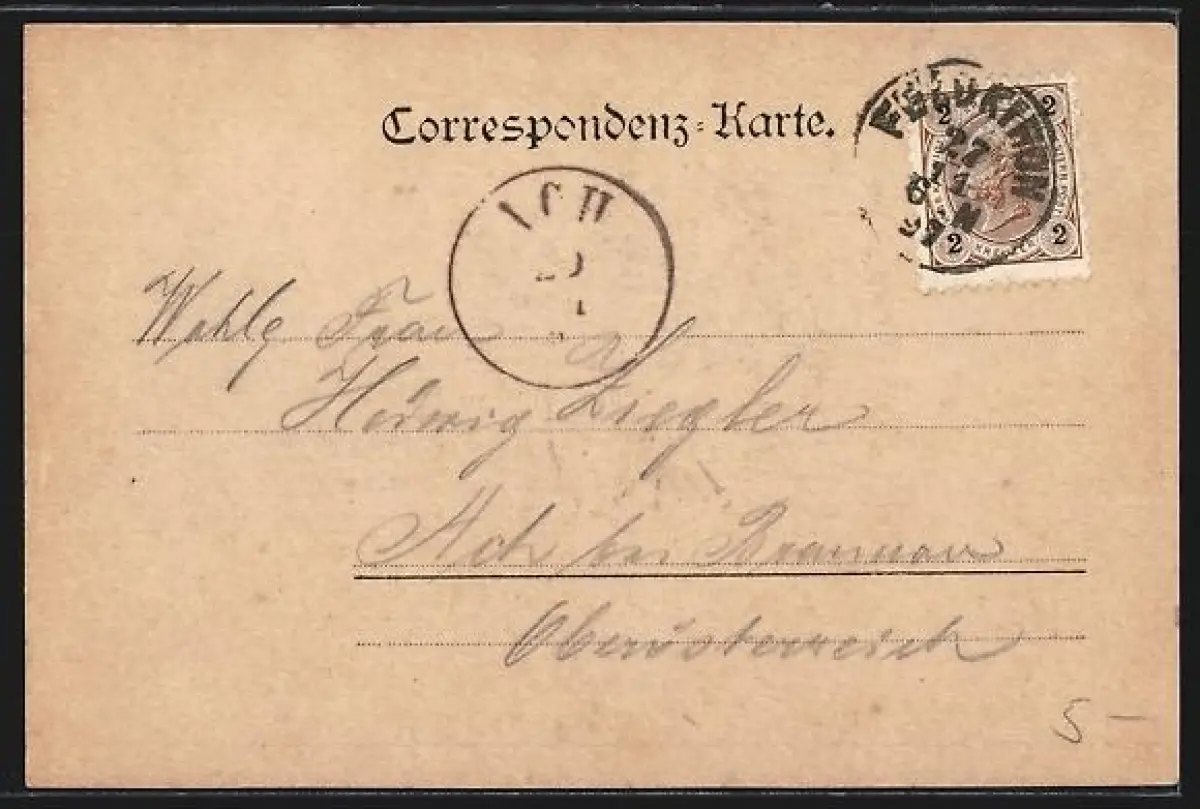 Correspondenz-Karte.
2 2
FELDKIRCH
27
2 2
KREUZER
ACH
Wohlg Frau
Hedwig Ziegler
Ach bei Braunau
Oberösterreich
5 —